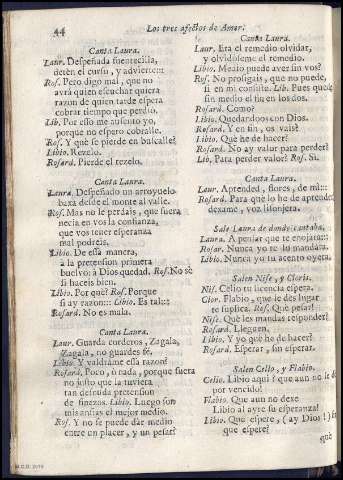 44
Los tres afectos de Amor.
Canta Laura.
Laur. Despeñada fuentecilla,
detèn el cursu, y advierte:::
Ros. Pero digo mal, que no
avrà quien escuchar quiera
razon de quien tarde espera
cobrar tiempo que perdio.
Lib. Por esso me ausento yo,
porque no espero cobralle.
Ros. Y què se pierde en buscalle?
Libio. Rezelo.
Rosard. Pierde el rezelo.
Canta Laura.
Laura. Despeñado un arroyuelo
baxa desde el monte al valle.
Ros. Mas no le perdais, que fuera
necia en vos la confianza,
que vos tener esperanza
mal podreis.
Libio. De essa manera,
à la pretension primera
buelvo: à Dios quedad. Ros. No sè
si haceis bien.
Libio. Por què? Ros. Porque
si ay razon::: Libio. Es tal:::
Rosard. No es mala.
Canta Laura.
Laur. Guarda corderos, Zagala,
Zagala, no guardes fè.
Libio. Y valdràme essa razon?
Rosard. Poco, ò nada, porque fuera
no justo que la tuviera
tan desnuda pretension
de finezas. Libio. Luego son
mis ansias el mejor medio.
Ros. Y no se puede dar medio
entre un placer, y un pesar?
Canta Laura.
Laur. Era el remedio olvidar,
y olvidòseme el remedio.
Libio. Medio puede aver sin vos?
Ros. No prosigais, que no puede,
si en mi consiste. Lib. Pues quede
sin medio el fin en los dos.
Rosard. Como?
Libio. Quedandoos con Dios.
Rosard. Y en fin, os vais?
Libio. Què he de hacer?
Rosard. No ay valor para perder?
Lib. Para perder valor? Ros. Sì.
Canta Laura.
Laur. Aprended, flores, de mì:::
Rosard. Para què lo he de aprender?
dexame, voz lisonjera.
Sale Laura de donde cantaba.
Laura. A pensar que te enojara:::
Nunca yo te lo mandàra,
Nunca yo tu acento oyera.
Salen Nise, y Cloris.
Nis. Celio tu licencia espera.
Clor. Flabio, que le dès lugar
te suplica. Ros. Què pesar!
Nise. Què les mandas responder?
Rosard. Lleguen.
Libio. Y yo què he de hacer?
Rosard. Esperar, sin esperar.
Salen Celio, y Flabio.
Celio. Libio aqui? que aun no le dè
por vencido!
Flabio. Que aun no dexe
Libio al ayre su esperanza!
Libio. Que espere, (ay Dios!) sin
que espere?
què